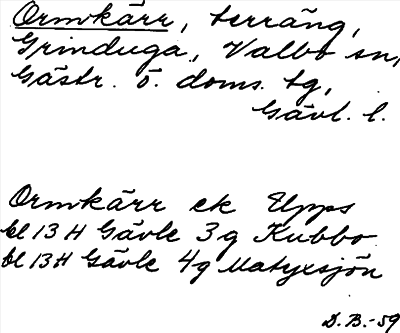 Ormkärr, terräng,
Grinduga, Valbo sn,
Gästr. ö. doms. tg,
Gävl. l.
Ormkärr ek Upps
bl 13 H Gävle 3g Kubbo
bl 13 H Gävle 4g Matyxsjön
D.B.-59